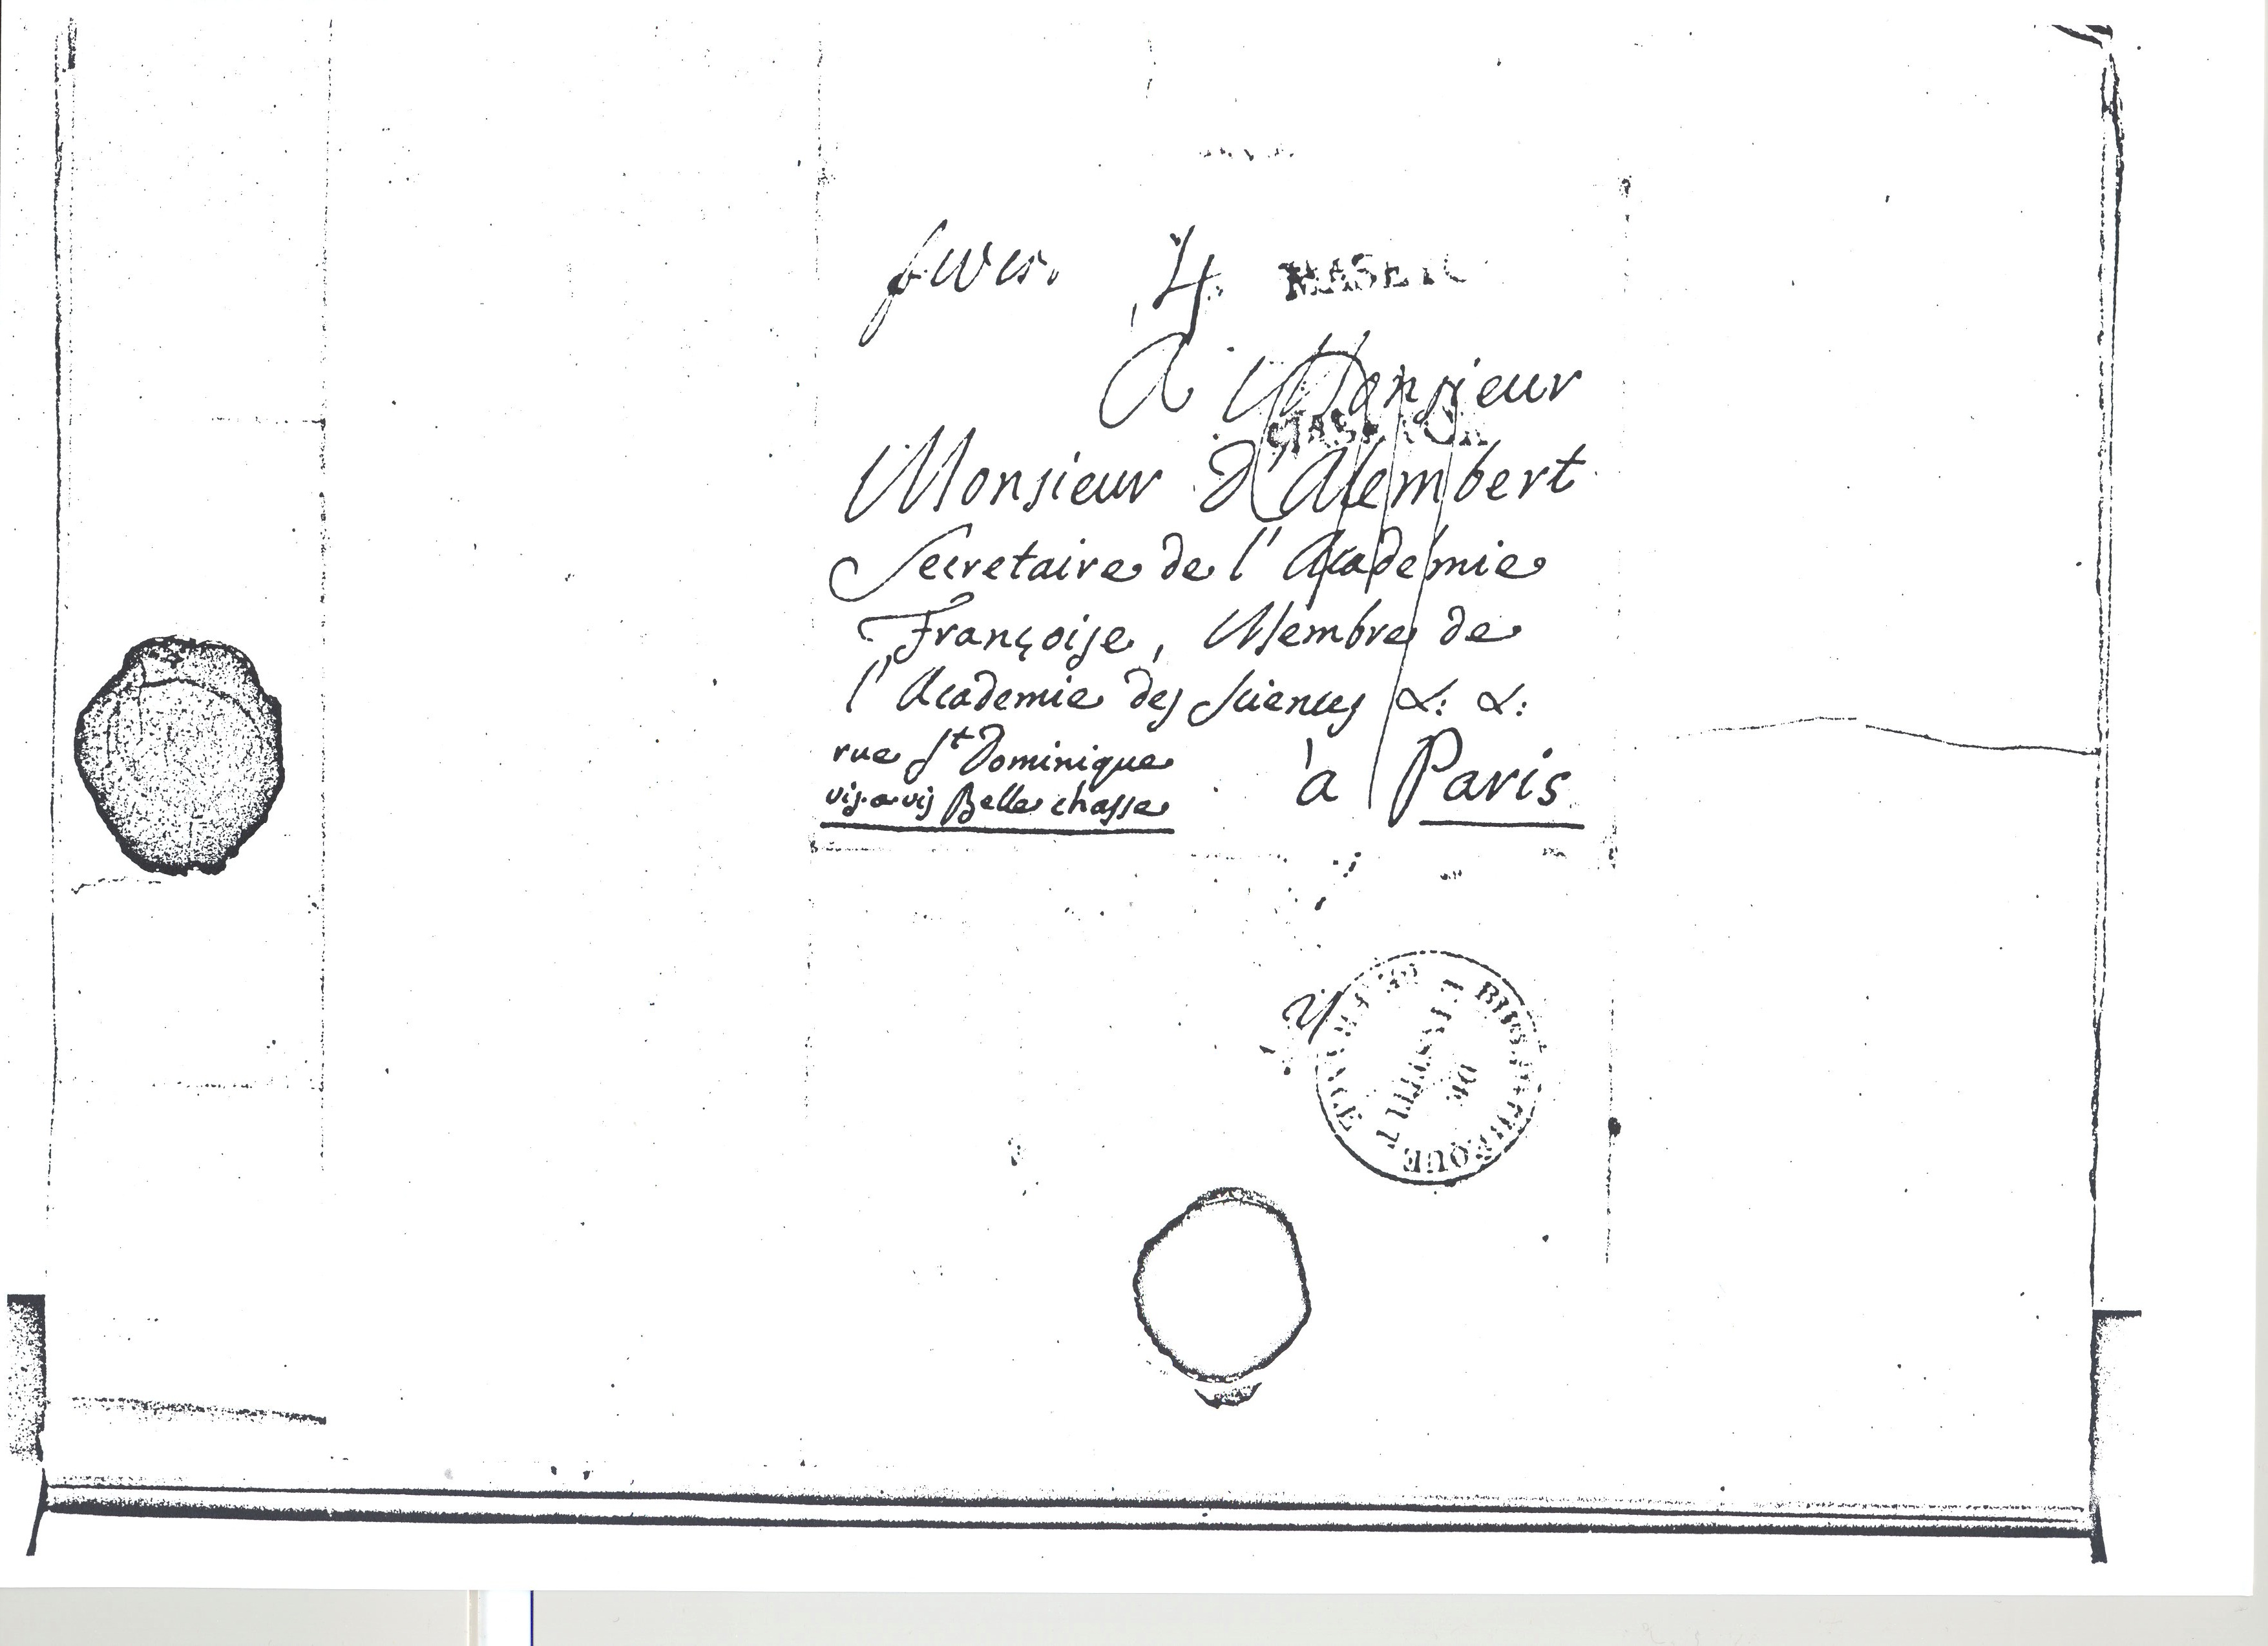 4
A Monsieur
Monsieur d'Alembert
Secretaire de l'Academie
Françoise, Membre de
l'Academie des Sciences &: &:
rue St Dominique
vis-a-vis Belle chasse
à Paris
BIBLIOTHÈQUE
DE
L'INSTITUT
DE FRANCE